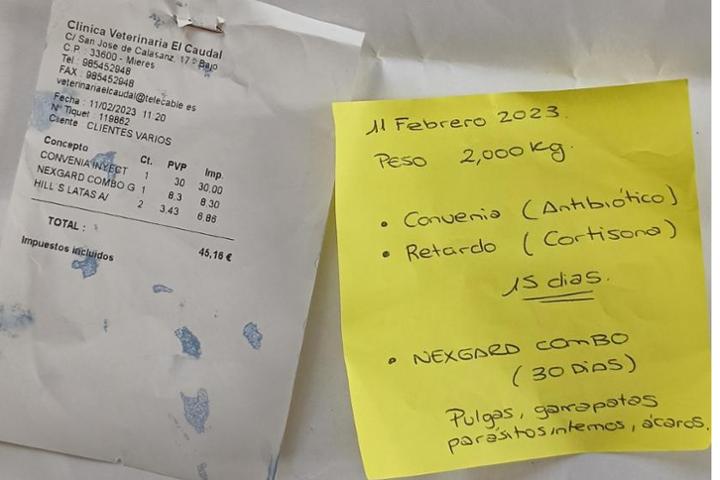 Clinica Veterinaria El Caudal
C/ San Jose de Calasanz, 17 - Bajo
C.P. : 33600 - Mieres
Tel : 985452948
FAX : 985452948
veterinariaelcaudal@telecable es
Fecha : 11/02/2023 11:20
Nº Tiquet : 119862
Cliente CLIENTES VARIOS
Concepto Ct. PVP Imp.
CONVENIA INYECT 1 30 30.00
NEXGARD COMBO G 1 8.3 8.30
HILL´S LATAS A/ 2 3.43 6.86
TOTAL :
45,16 €
Impuestos incluidos
11 Febrero 2023.
PESO 2,000 Kg.
• Convenia (Antibiótico)
• Retardo (Cortisona)
15 dias.
• NEXGARD COMBO
(30 DIAS)
Pulgas, garrapatas
parásitos internos, ácaros.